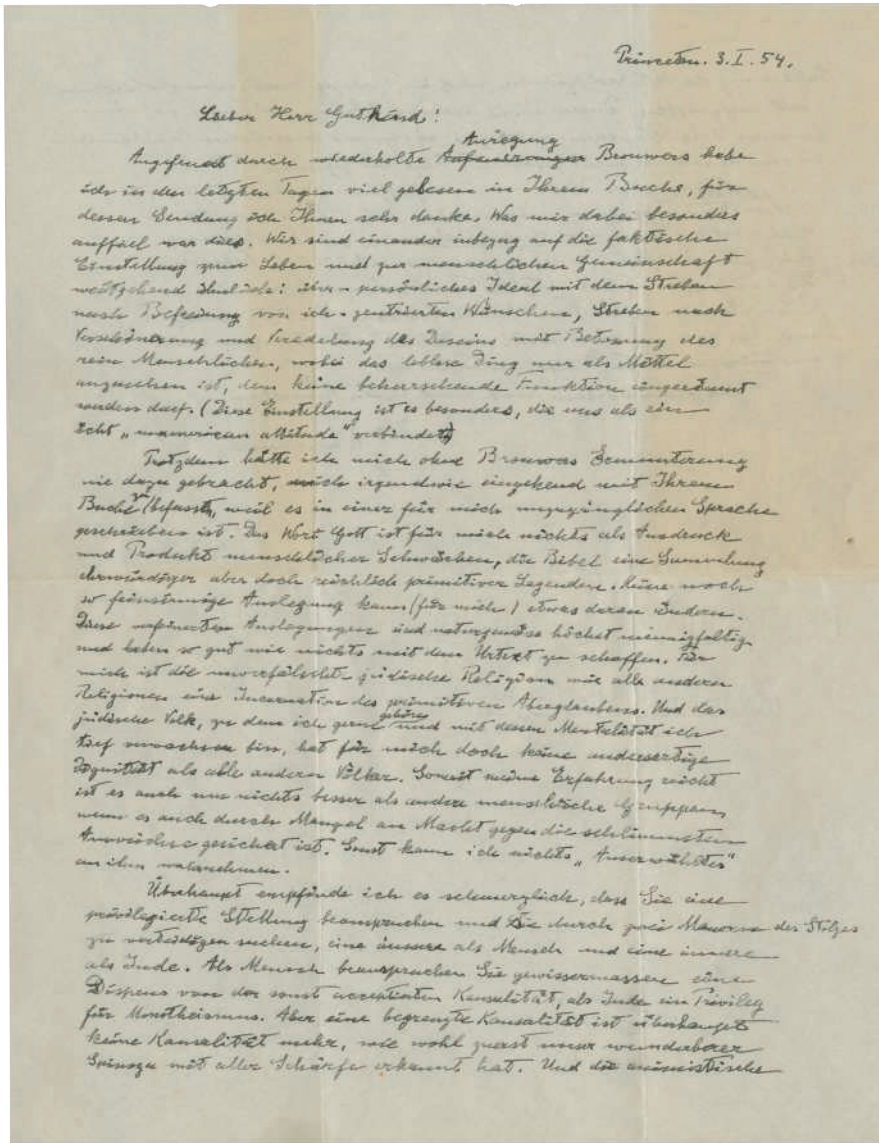 Princeton. 3. I. 54.
Lieber Herr Gutkind!
Anregung
Angefeuert durch wiederholte Brouwers habe
ich in den letzten Tagen viel gelesen in Ihrem Buche, für
dessen Sendung ich Ihnen sehr danke. Was mir dabei besonders
auffiel war dies. Wir sind einander inbezug auf die faktische
Einstellung zum Leben und zur menschlichen Gemeinschaft
weitgehend ähnlich: über-persönliches Ideal mit dem Streben
nach Befreiung von ich-zentrierten Wünschen, Streben nach
Verschönerung und Veredelung des Daseins mit Betonung des
rein Menschlichen, wobei das leblose Ding nur als Mittel
anzusehen ist, dem keine beherrschende Funktion eingeräumt
werden darf. (Diese Einstellung ist es besonders, die uns als ein
echt „unamerican attitude" verbindet)
Trotzdem hätte ich mich ohne Brouwers Ermunterung
nie dazu gebracht, mich irgendwie eingehend mit Ihrem
Buche zu befassen, weil es in einer für mich unzugänglichen Sprache
geschrieben ist. Das Wort Gott ist für mich nichts als Ausdruck
und Produkt menschlicher Schwächen, die Bibel eine Sammlung
ehrwürdiger aber doch reichlich primitiver Legenden. Keine noch
so feinsinnige Auslegung kann (für mich) etwas daran ändern.
Diese verfeinerten Auslegungen sind naturgemäss höchst mannigfaltig
und haben so gut wie nichts mit dem Urtext zu schaffen. Für
mich ist die unverfälschte jüdische Religion wie alle anderen
Religionen eine Incarnation des primitiven Aberglaubens. Und das
jüdische Volk, zu dem ich gerne gehöre und mit dessen Mentalität ich
tief verwachsen bin, hat für mich doch keine andersartige
Dignität als alle andern Völker. Soweit meine Erfahrung reicht
ist es auch um nichts besser als andere menschliche Gruppen
wenn es auch durch Mangel an Macht gegen die schlimmsten
Auswüchse gesichert ist. Sonst kann ich nichts „Auserwähltes"
an ihm wahrnehmen.
Überhaupt empfinde ich es schmerzlich, dass Sie eine
privilegierte Stellung beanspruchen und sie durch zwei Mauern des Stolzes
zu verteidigen suchen, eine äussere als Mensch und eine innere
als Jude. Als Mensch beanspruchen Sie gewissermassen einen
Dispens von der sonst acceptierten Kausalität, als Jude ein Privileg
für Monotheismus. Aber eine begrenzte Kausalität ist überhaupt
keine Kausalität mehr, wie wohl zuerst unser wunderbarer
Spinoza mit aller Schärfe erkannt hat. Und die animistische